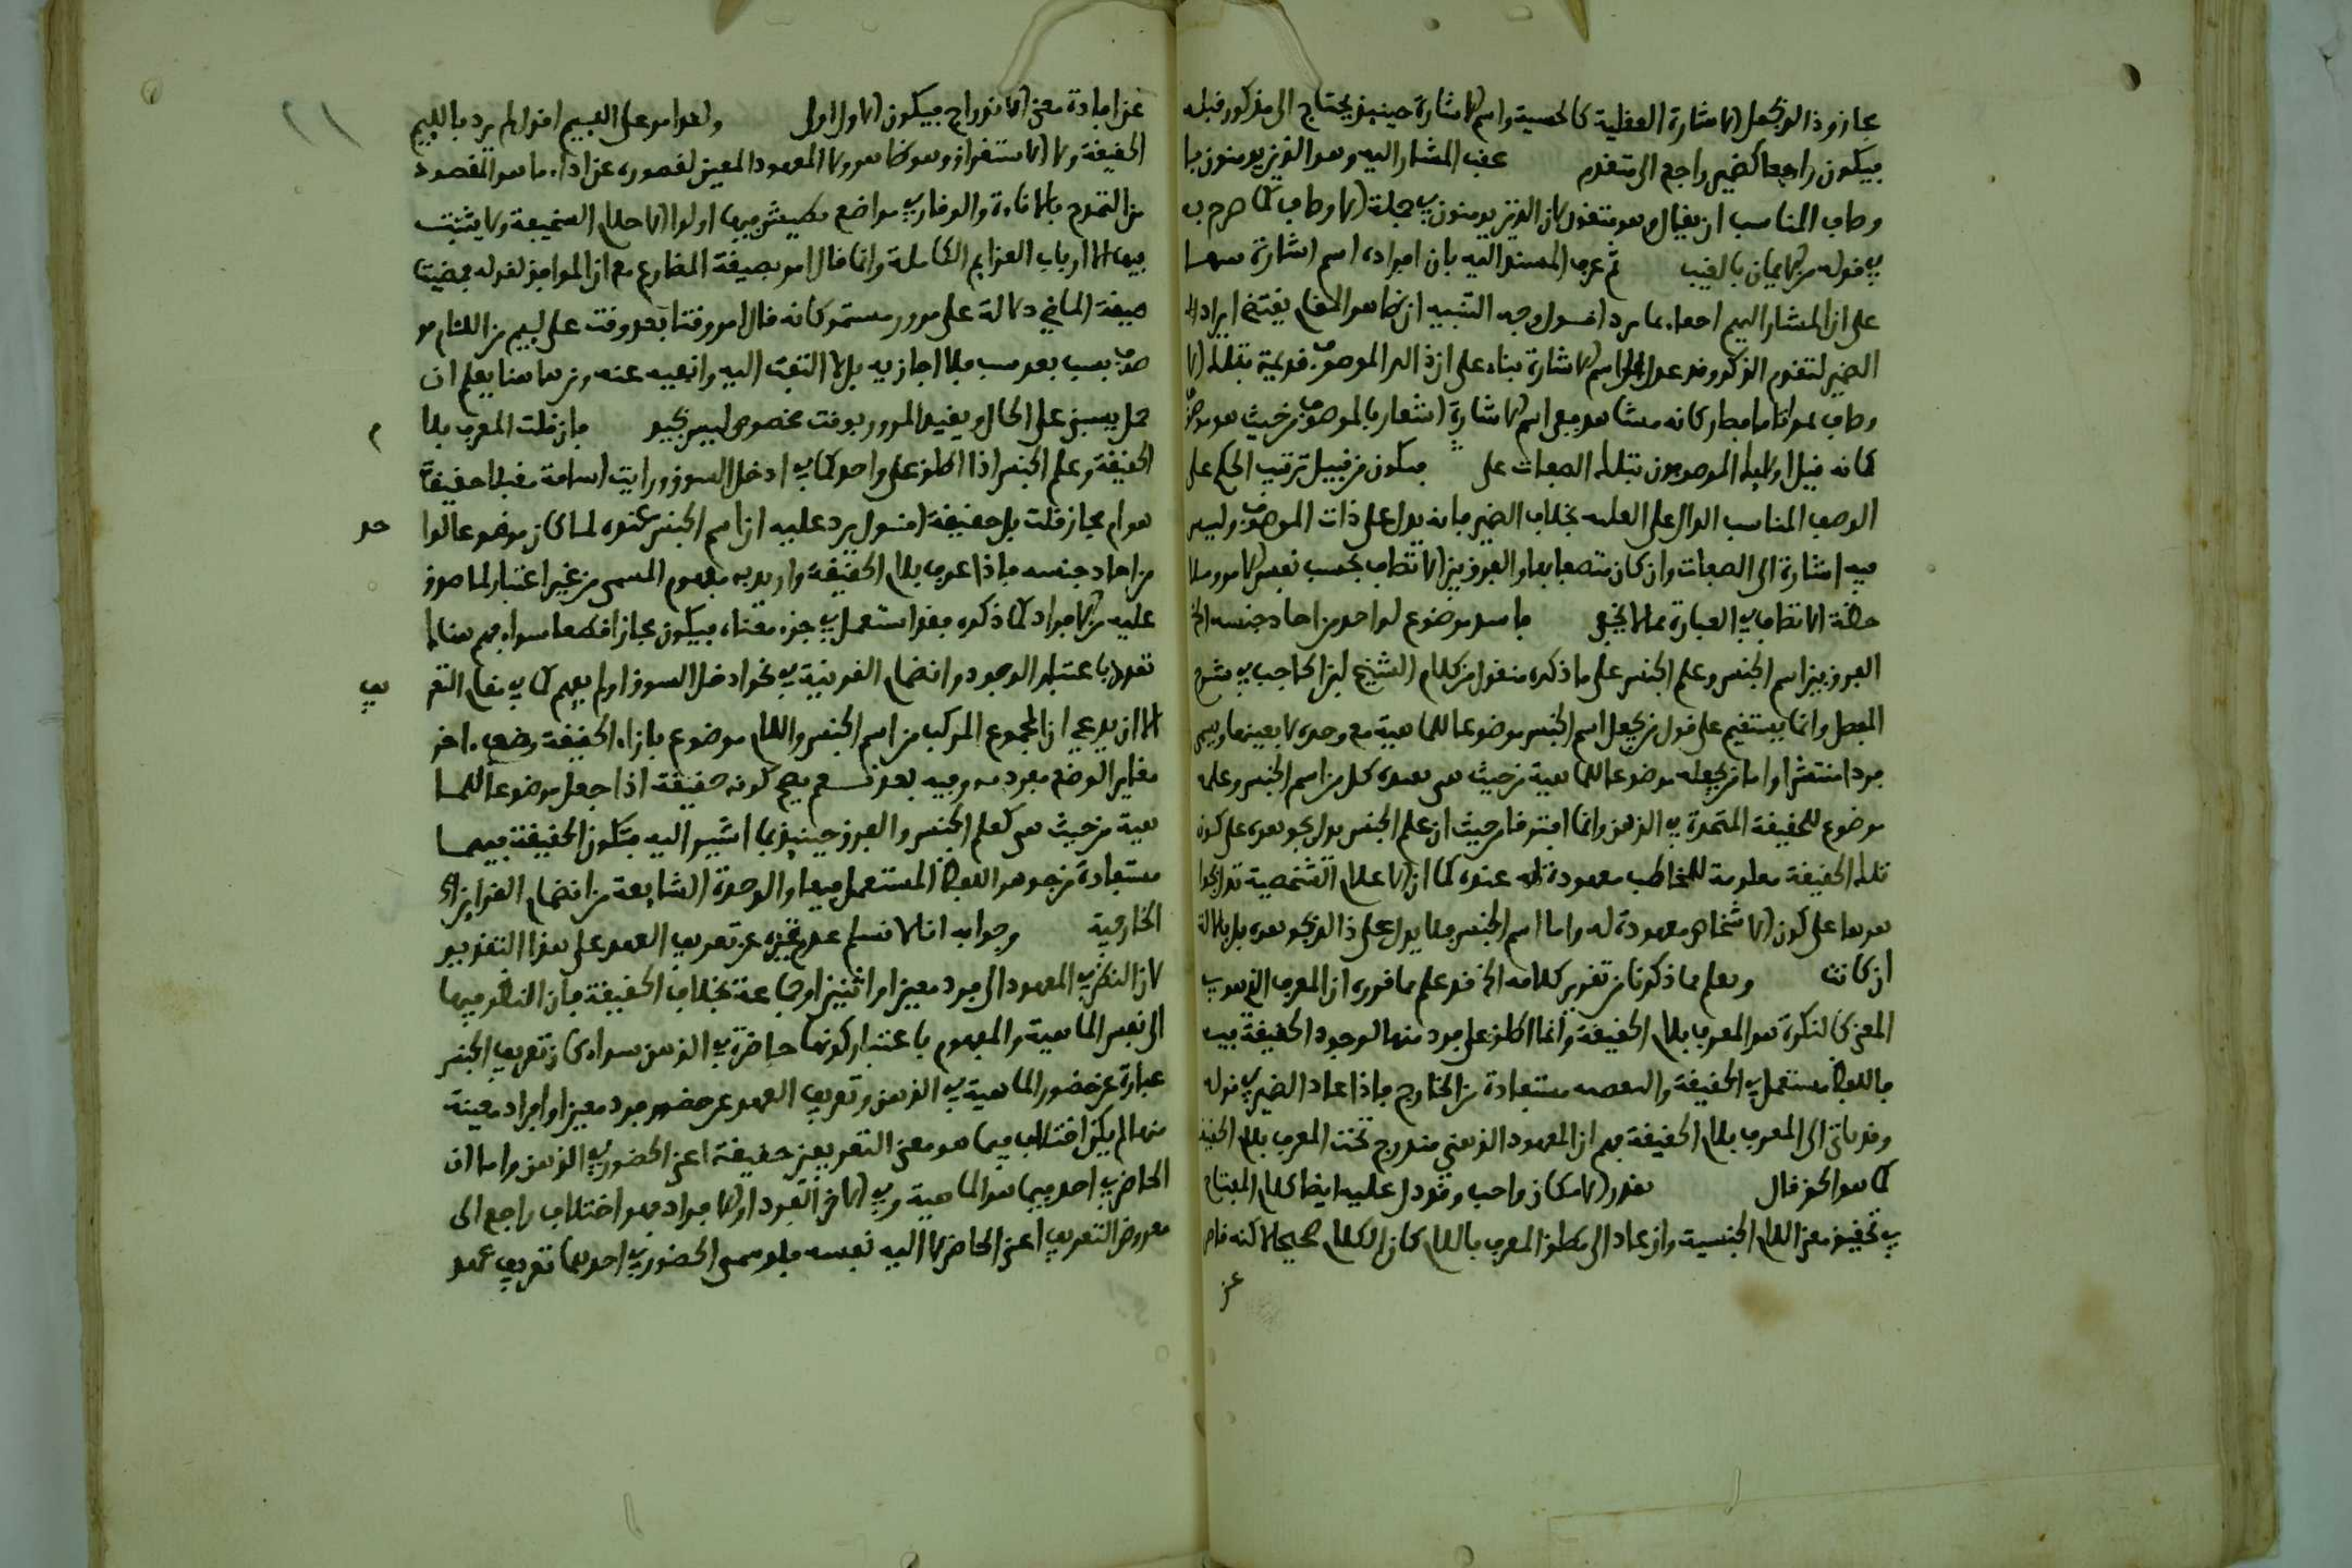 مجاز وذا لو نجعل الاشارة العقلية كالحسية واسم الاشارة حينئذ يحتاج الى مذكور قبله
فيكون راجعا كضمير راجع الى متقدم عقب المشار اليه وهو الذين يومنون با
المناسب ان يقال وهو متقون لان الذين يومنون في جملة الاوصاف كما صرح به
في قوله من الايمان بالغيب ثم عرف المسند اليه بان ايراده اسم اشارة
على ان المشار اليهم احقاء بما يرد اقول وجه التنبيه ان ظاهر المقام يقتضي ايراد
الضمير لتقدم الذكر وقد عدل الى اسم الاشارة بناء على ان ذلك الموصوف قد تميز بتلك الا
وصاف تميزا تاما فصار كانه مشاهد ففي اسم الاشارة اشعار بالموصوف من حيث هو موصوف
كانه قيل اوليك الموصوفون بتلك الصفات على فيكون من قبيل ترتيب الحكم على
الوصف المناسب الدال على العلية بخلاف الضمير فانه يدل على ذات الموصوف وليس
فيه اشارة الى الصفات وان كان متصفا بها والفرق بين الاتصاف بحسب نفس الامر وملا
حظة الاتصاف في العبارة مما لا يخفى فاسد موضوع لواحد من احاد جنسه الخ
الفرق بين اسم الجنس وعلم الجنس على ما ذكره منقول من كلام الشيخ ابن الحاجب في شرح
المفصل وانما يستقيم على قول من يجعل اسم الجنس موضوعا للماهية مع وحدة لا بعينها ويسمى
فردا منتشرا واما من يجعله موضوعا للماهية من حيث هي فعنده كل من اسم الجنس وعلمه
موضوع للحقيقة المتحدة في الذهن وانما افترقا من حيث ان علم الجنس يدل بجوهره على كون
تلك الحقيقة معلومة للمخاطب معهودة عنده كما ان الاعلام الشخصية تدل بجوا
هرها على كون الاشخاص معهودة له واما اسم الجنس فلا يدل على ذلك بجوهره بل بالالة
ان كانت ويعلم مما ذكرنا من تقرير كلامه الخ قد علم مما قرره ان المعرف الذي هو في
المعنى كالنكرة هو المعرف بلام الحقيقة وانما اطلق على فرد منها لوجود الحقيقة فيه
فاللفظ مستعمل في الحقيقة مستفادة من الخارج فاذا عاد الضمير في قوله
وقد ياتي الى المعرف بلام الحقيقة فهم ان المعهود الذهني مندرج تحت المعرف بلام الحقيقة
كما هو الحق قال بقدر الامكان واجب وقد دل عليه ايضا كلام المفتاح
في تحقيق معنى اللام الجنسية وان عاد الى مطلق المعرف باللام كان الكلام صحيحا لاكنه قاصر
عن
عن افادة معنى الاندراج فيكون الاول اولى ولقد امر على اللئيم اقول لم يرد باللئيم
الحقيقة ولا الاستغراق وهو ظاهر ولا المعهود المعين لقصوره عن اداء ما هو المقصود
من التمدح بالاناءة والوقار في مواضع يطيش فيها اولوا الاحلام السخيفة ولا يثبت
فيها الا ارباب العزايم الكاملة وانما قال امر بصيغة المضارع مع ان الموافق لقوله فمضيت
صيغة الماضي دلالة على مرور مستمر كانه قال امر وقتا بعد وقت على لئيم من اللئام مو
صوف بسب بعد سب فلا اجازيه بل لا التفت اليه واتغيبه عنه ومن هاهنا يعلم ان
حمل يسبني على الحال وتقييد المرور بوقت مخصوص ليس بجيد فان قلت المعرف بلام
الحقيقة وعلم الجنس اذا اطلق على واحد كما في ادخل السوق ورايت اسامة مقبلا حقيقة
هو ام مجاز قلت بل حقيقة اقول يرد عليه ان اسم الجنس عنده لما كان موضوعا لوا
حد
من احاد جنسه فاذا عرف بلام الحقيقة واريد به مفهوم المسمى من غير اعتبار لما صدق
عليه من الافراد كما ذكره فقد استعمل في جزء معناه فيكون مجازا قطعا سواء فهم هناك
تعدد باعتبار الوجود وانضمام القرينة في نحو ادخل السوق او لم يفهم كما في مقام التعر
يف
الا ان يدعي ان المجموع المركب من اسم الجنس واللام موضوع بازاء الحقيقة وضعا اخر
مغاير الوضع مفرده وفيه بعد نعم يصح كونه حقيقة اذا جعل موضوعا للما
هية من حيث هي كعلم الجنس والفرق حينئذ بما اشير اليه فتكون الحقيقة فيهما
مستفادة من جوهر اللفظ المستعمل فيها والوحدة الشايعة من انضمام القراين
الخارجية وجوابه انا لا نسلم عدم تميزه عن تعريف العهد على هذا التقدير
لان النظر في المعهود الى فرد معين او اثنين او جماعة بخلاف الحقيقة فان النظر فيها
الى نفس الماهية والمفهوم باعتبار كونها حاضرة في الذهن سواء كان تعريف الجنس
عبارة عن حضور الماهية في الذهن وتعريف العهد عن حضور فرد معين او افراد معينة
منها لم يكن اختلاف فيما هو معنى التعريفين حقيقة اعني الحضور في الذهن واما ان
الحاضر في احدهما هو الماهية وفي الاخر الفرد او الافراد فهو اختلاف راجع الى
معروض التعريف اعني الحاضر لا اليه نفسه فلو سمى الحضور في احدهما تعريف عهد